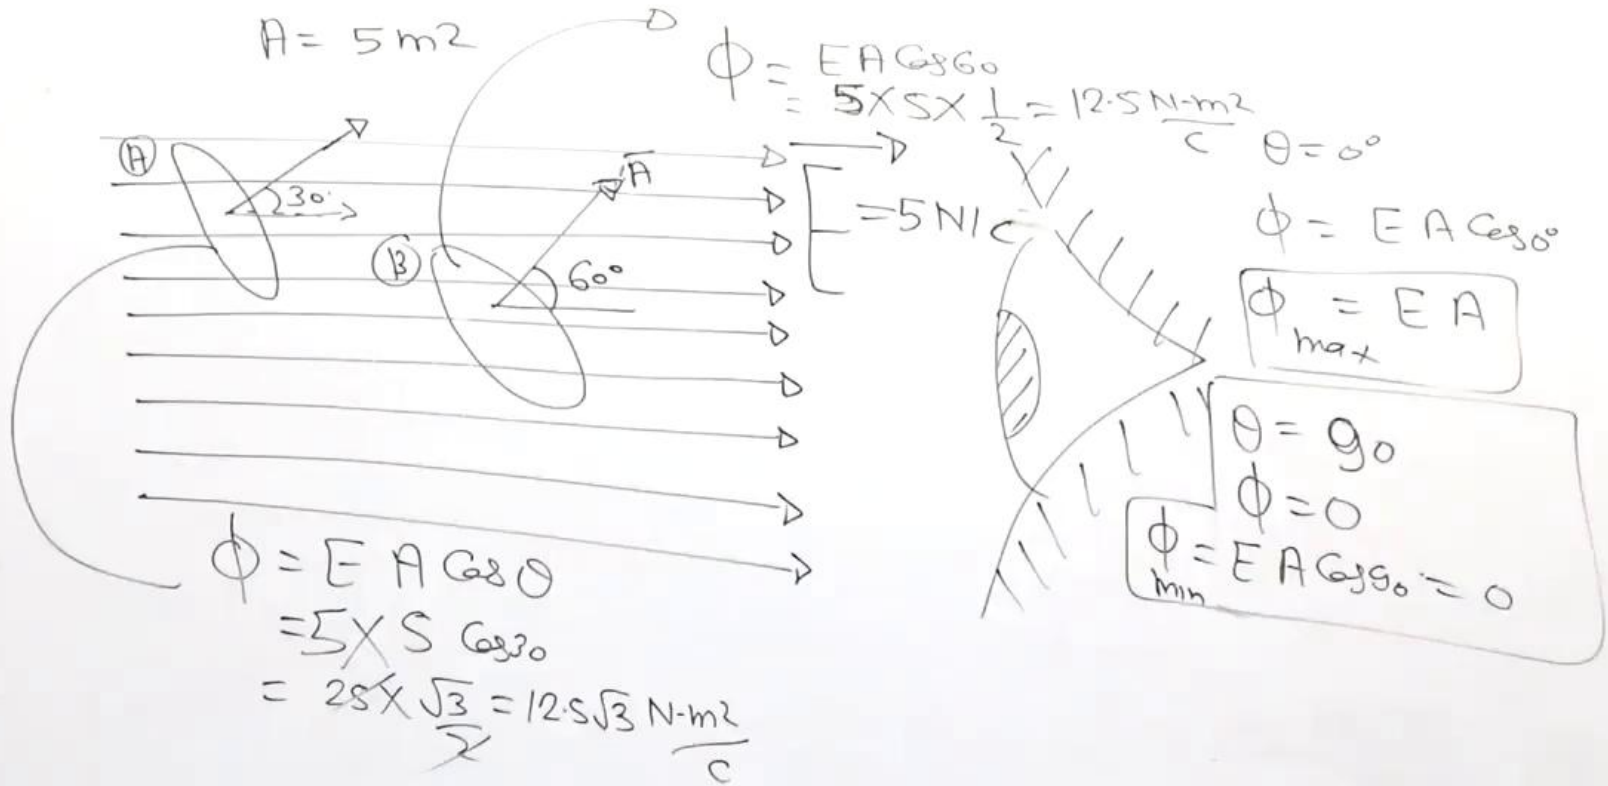 A = 5 m2
ϕ = EA Cos60
= 5 X 5 X 1/2 = 12.5 N-m2/C
A
30°
B
A
60°
E = 5 N/C
θ = 0°
ϕ = E A Cos0°
ϕmax = E A
θ = 90
ϕ = 0
ϕmin = E A Cos90 = 0
ϕ = E A Cosθ
= 5 X 5 Cos30
= 25 X √3/2 = 12.5√3 N-m2/C